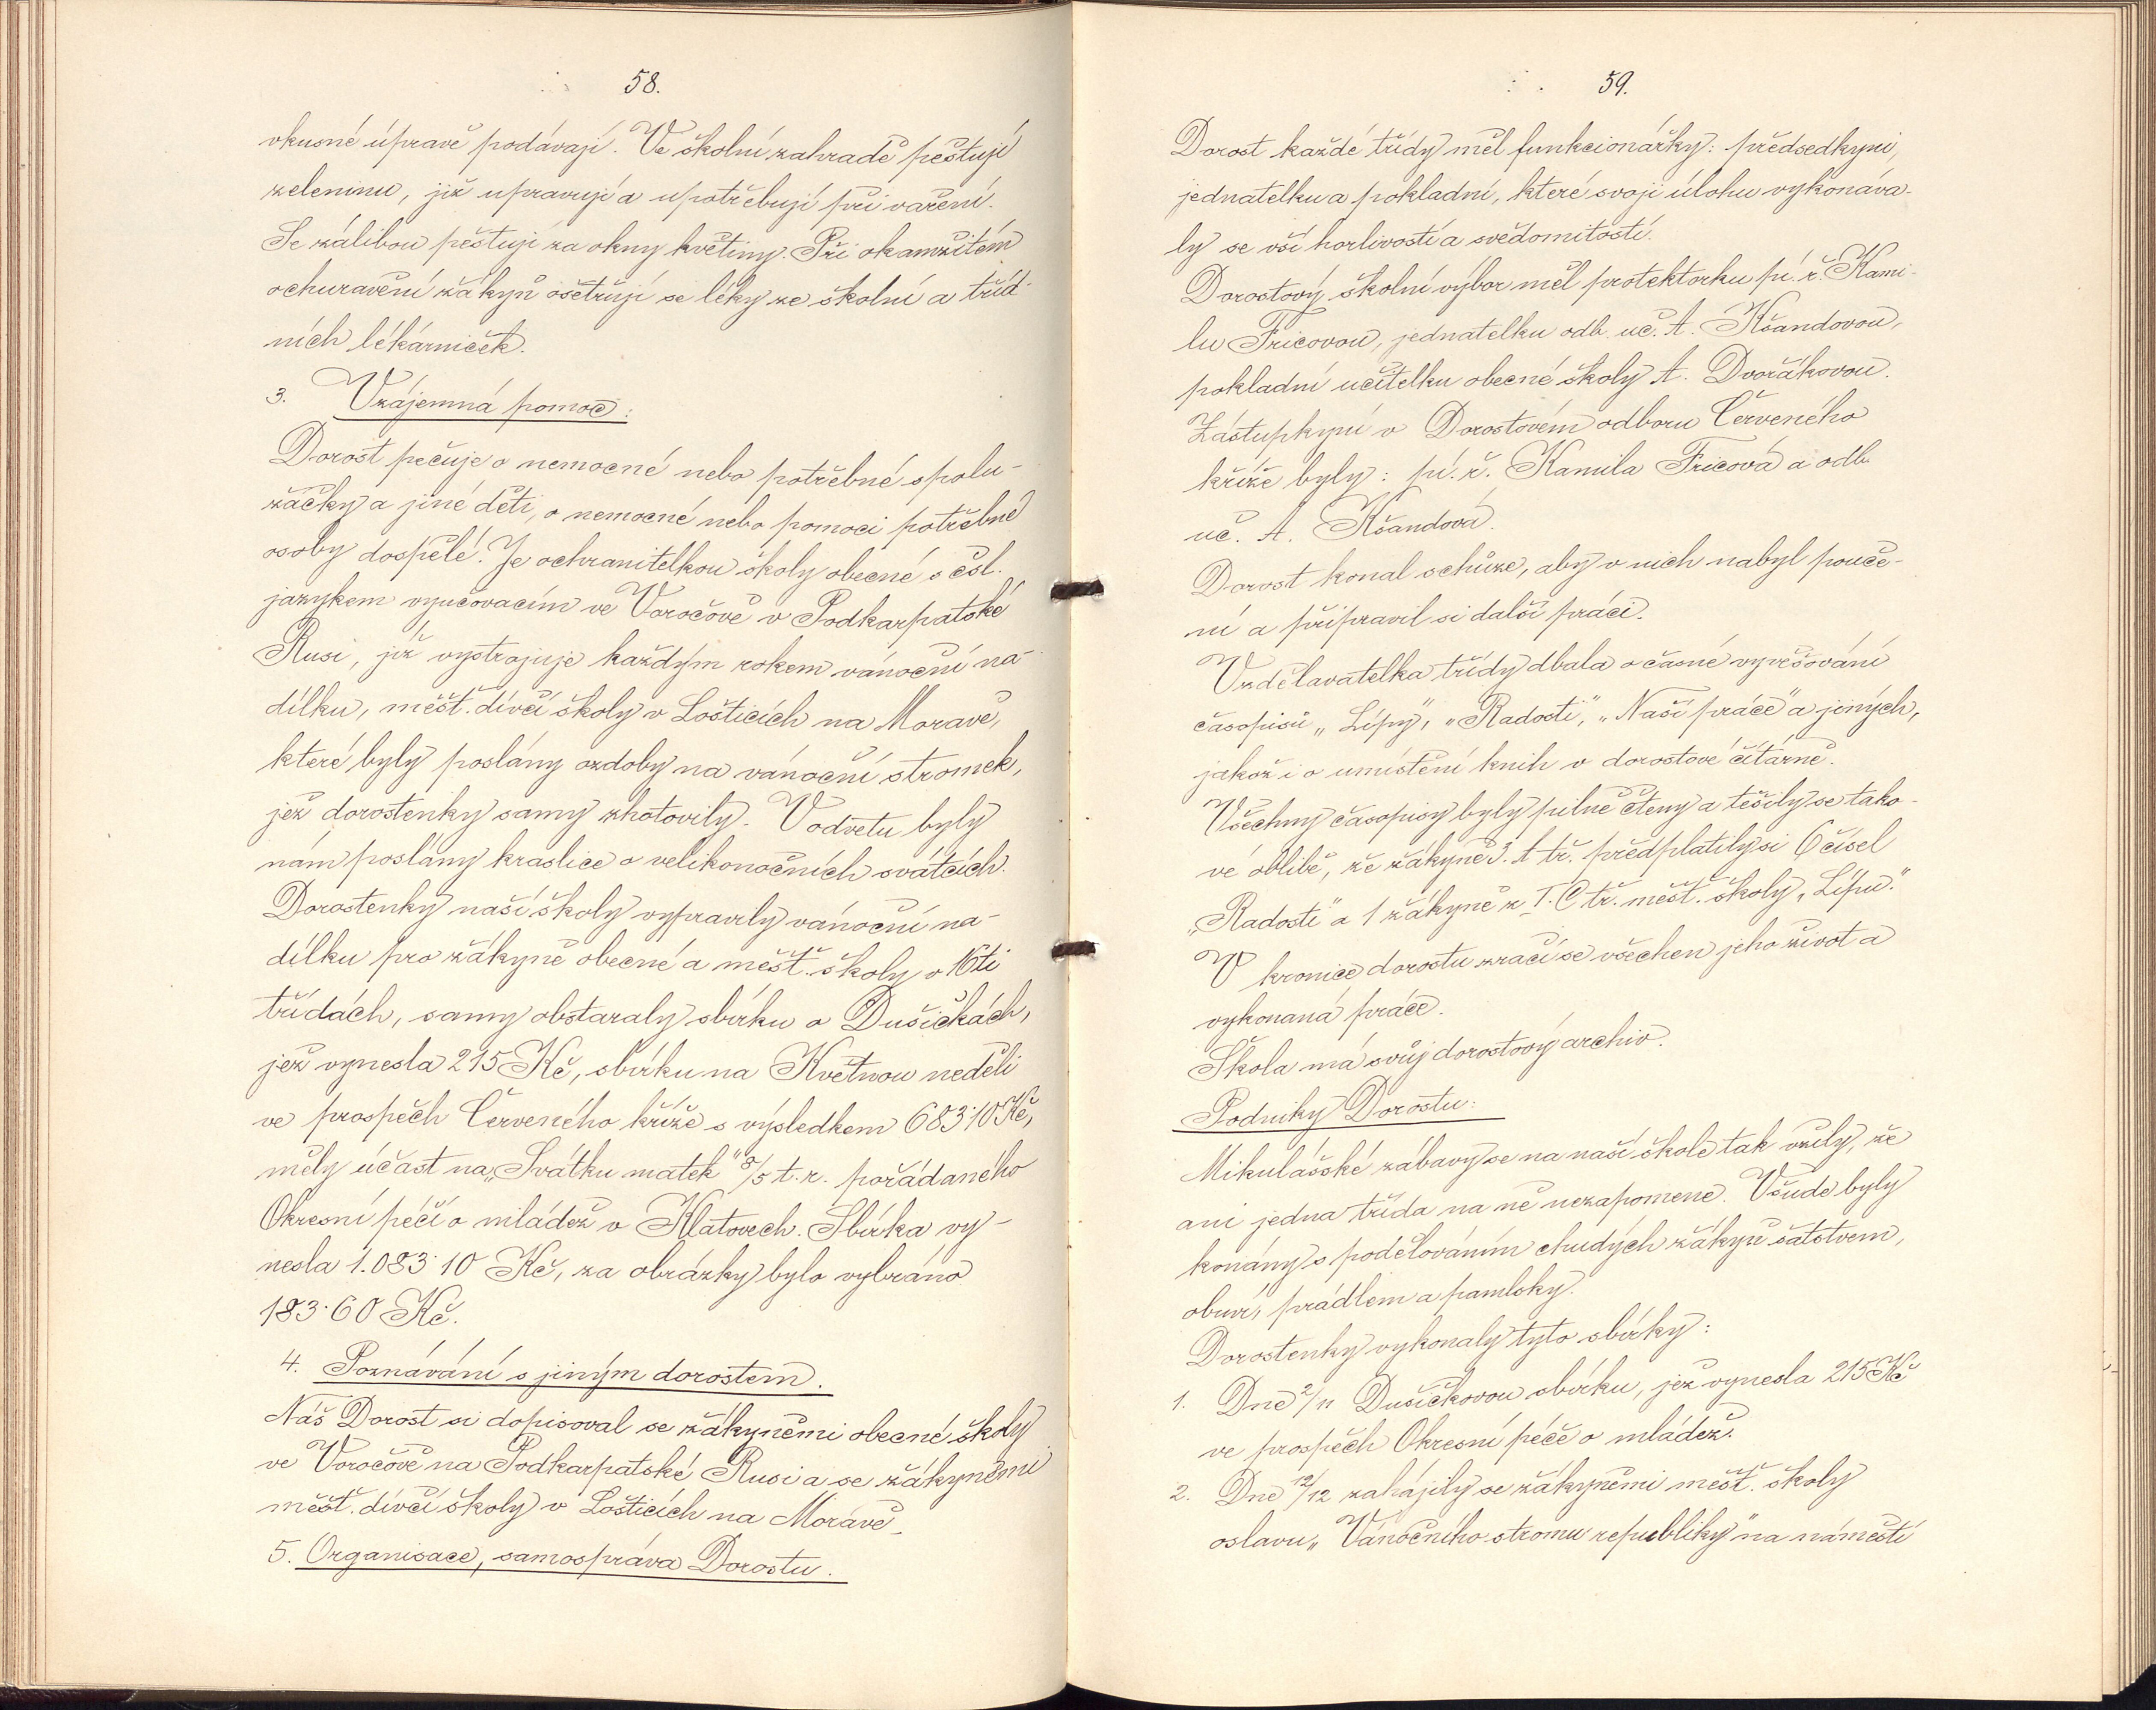 58.
vkusné úpravě podávají. Ve školní zahradě pěstují
zeleninu, již upravují a upotřebují při vaření.
Se zálibou pěstují za okny květiny. Při okamžitém
ochuravění žákyň ošetřují se léky ze školní a tříd-
ních lékárniček.
3. Vzájemná pomoc:
Dorost pečuje o nemocné nebo potřebné spolu-
žačky a jiné děti, o nemocné nebo pomoci potřebné
osoby dospělé. Je ochranitelkou školy obecné s čsl.
jazykem vyučovacím ve Voročově v Podkarpatské
Rusi, jíž vystrojuje každým rokem vánoční na-
dílku, měšť. dívčí školy v Lošticích na Moravě,
které byly poslány ozdoby na vánoční stromek,
jež dorostenky samy zhotovily. V odvetu byly
nám poslány kraslice o velikonočních svátcích.
Dorostenky naší školy vypravily vánoční na-
dílku pro žákyně obecné a měšť. školy v 16ti
třídách, samy obstaraly sbírku o Dušičkách,
jež vynesla 215 Kč, sbírku na Květnou neděli
ve prospěch Červeného kříže s výsledkem 683·10 Kč,
měly účast na „Svátku matek" 8/5 t. r. pořádaného
Okresní péčí o mládež v Klatovech. Sbírka vy-
nesla 1.083·10 Kč, za obrázky bylo vybráno
183·60 Kč.
4. Poznávání s jiným dorostem.
Náš Dorost si dopisoval se žákyněmi obecné školy
ve Voročově na Podkarpatské Rusi a se žákyněmi
měšť. dívčí školy v Lošticích na Moravě.
5. Organisace, samospráva Dorostu.
59.
Dorost každé třídy měl funkcionářky: předsedkyni,
jednatelku a pokladní, které svoji úlohu vykonáva-
ly se vší horlivostí a svědomitostí.
Dorostový školní výbor měl protektorku pí. ř. Kami-
lu Fricovou, jednatelku odb. uč. A. Kšandovou,
pokladní učitelku obecné školy A. Dvořákovou.
Zástupkyní v Dorostovém odboru Červeného
kříže byly: pí. ř. Kamila Fricová a odb.
uč. A. Kšandová.
Dorost konal schůze, aby v nich nabyl pouče-
ní a připravil si další práci.
Vzdělavatelka třídy dbala o časné vyvěšování
časopisů „Lípy", „Radosti", „Naší práce" a jiných,
jakož i o umístění knih v dorostové čítárně.
Všechny časopisy byly pilně čteny a těšily se tako-
vé oblibě, že žákyně 3. A tř. předplatily si 6 čísel
„Radosti" a 1 žákyně z I. C tř. měšť. školy „Lípu".
V kronice dorostu zračí se všechen jeho život a
vykonaná práce.
Škola má svůj dorostový archiv.
Podniky Dorostu:
Mikulášské zábavy se na naší škole tak vžily, že
ani jedna třída na ně nezapomene. Všude byly
konány s podělováním chudých žákyň šatstvem,
obuví, prádlem a pamlsky.
Dorostenky vykonaly tyto sbírky:
1. Dne 2/11 Dušičkovou sbírku, jež vynesla 215 Kč
ve prospěch Okresní péče o mládež.
2. Dne 12/12 zahájily se žákyněmi měšť. školy
oslavu „Vánočního stromu republiky" na náměstí